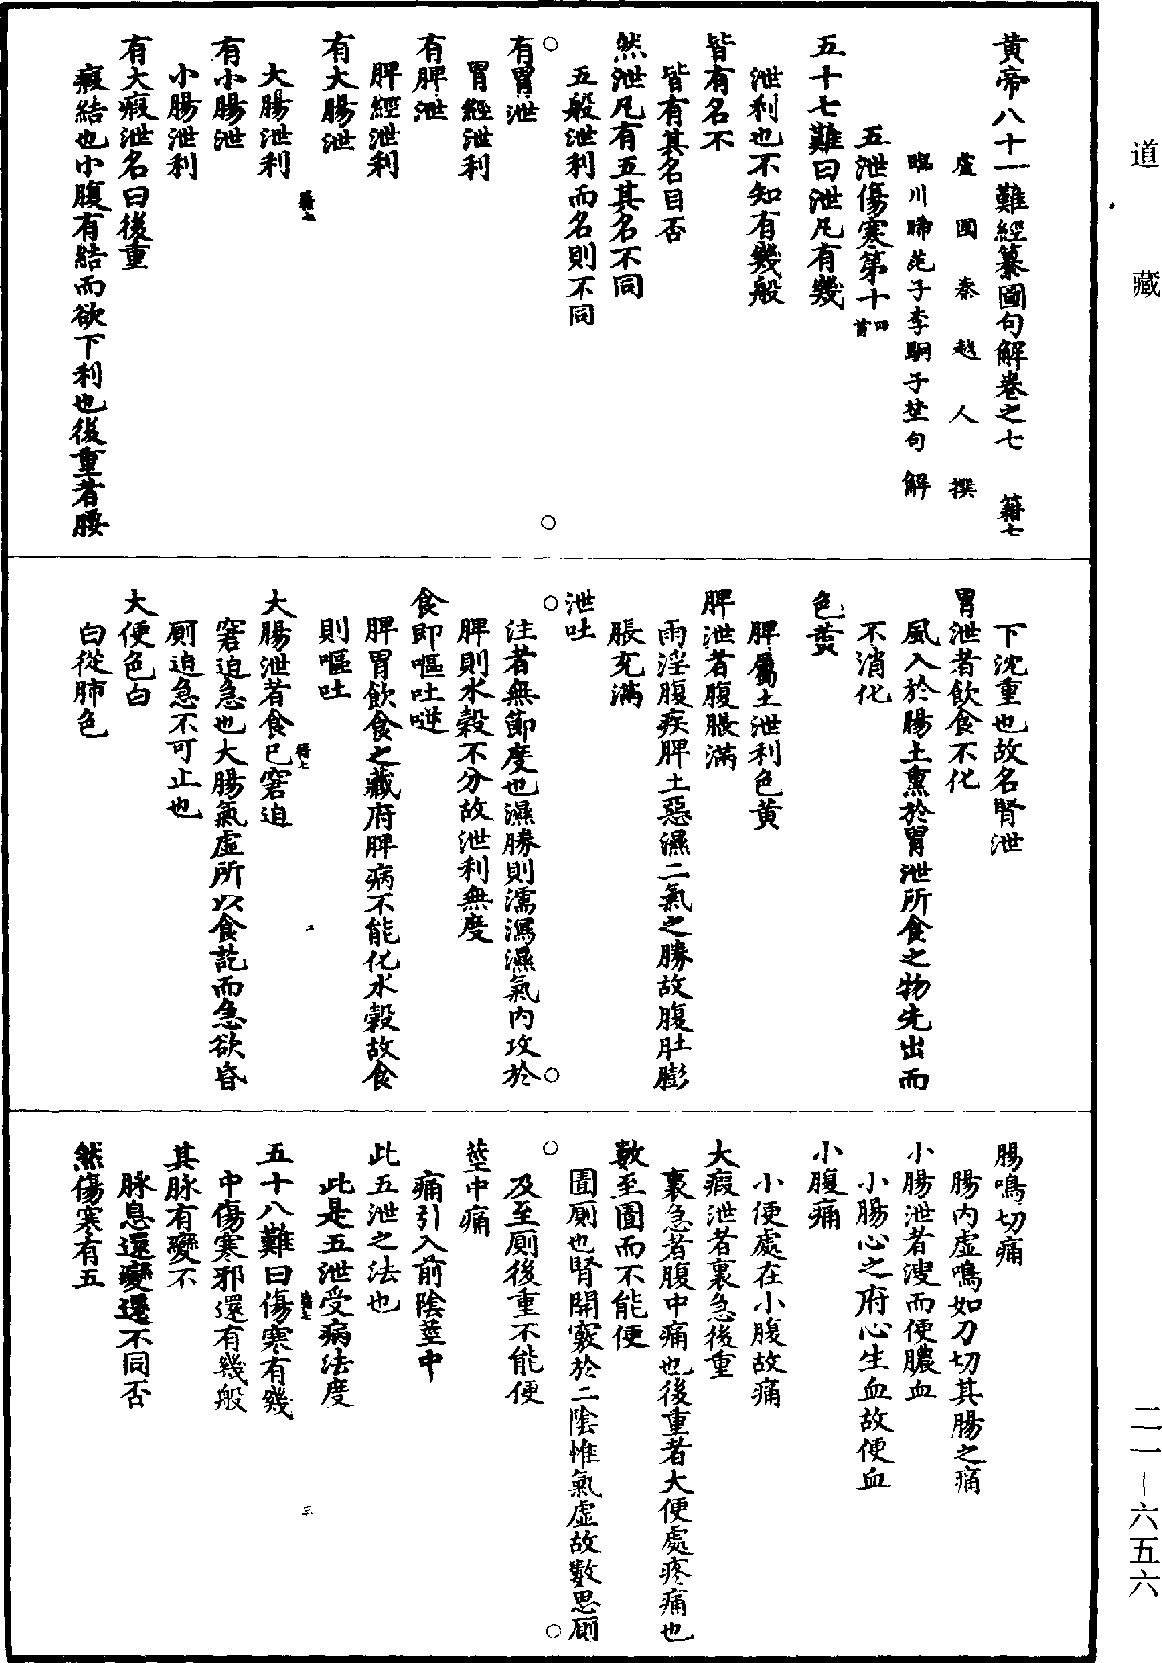 道藏
黃帝八十一難經纂圖句解卷之七 籍七
盧國秦越人撰
臨川晞范子李駉子埜句解
五泄傷寒第十四首
五十七難曰泄凡有幾
泄利也不知有幾般
皆有名不
皆有其名目否
然泄凡有五其名不同
五般泄利而名則不同
有胃泄
胃經泄利
有脾泄
脾經泄利
有大腸泄
大腸泄利
有小腸泄
小腸泄利
有大瘕泄名曰後重
瘕結也小腹有結而欲下利也後重者腰
下沈重也故名腎泄
胃泄者飲食不化
風入於腸土熏於胃泄所食之物先出而
不消化
色黃
脾屬土泄利色黃
脾泄者腹脹滿
雨淫腹疾脾土惡濕二氣之勝故腹肚膨
脹充滿
泄吐
注者無節度也濕勝則濡瀉濕氣內攻於
脾則水穀不分故泄利無度
食即嘔吐噠
脾胃飲食之藏府脾病不能化水穀故食
則嘔吐
大腸泄者食已窘迫
窘迫急也大腸氣虛所以食訖而急欲登
厠迫急不可止也
大便色白
白從肺色
腸鳴切痛
腸內虛鳴如刀切其腸之痛
小腸泄者溲而便膿血
小腸心之府心生血故便血
小腹痛
小便處在小腹故痛
大瘕泄者裏急後重
裏急者腹中痛也後重者大便處疼痛也
數至圊而不能便
圊厠也腎開竅於二陰惟氣虛故數思厠
及至厠後重不能便
莖中痛
痛引入前陰莖中
此五泄之法也
此是五泄受病法度
五十八難曰傷寒有幾
中傷寒邪還有幾般
其脉有變不
脉息還變還不同否
然傷寒有五
二一－六五六